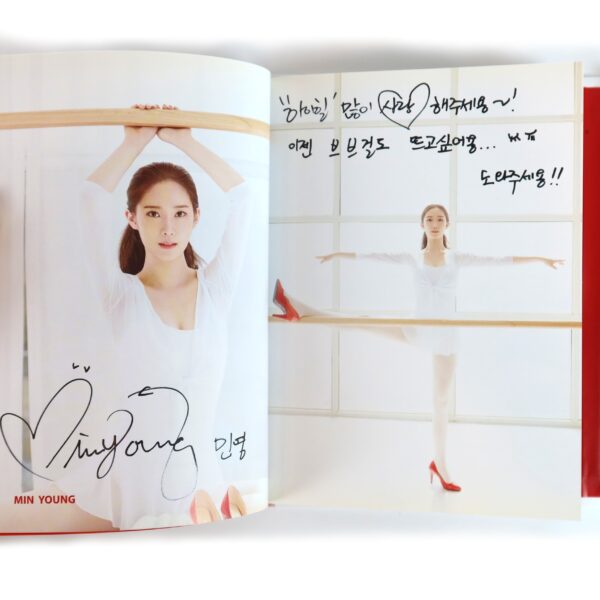 MinYoung 민영
MIN YOUNG
"하이힐" 많이 사랑 해주세용~!
이젠 브브걸도 뜨고싶어용... ㅠㅠ
도와주세용!!